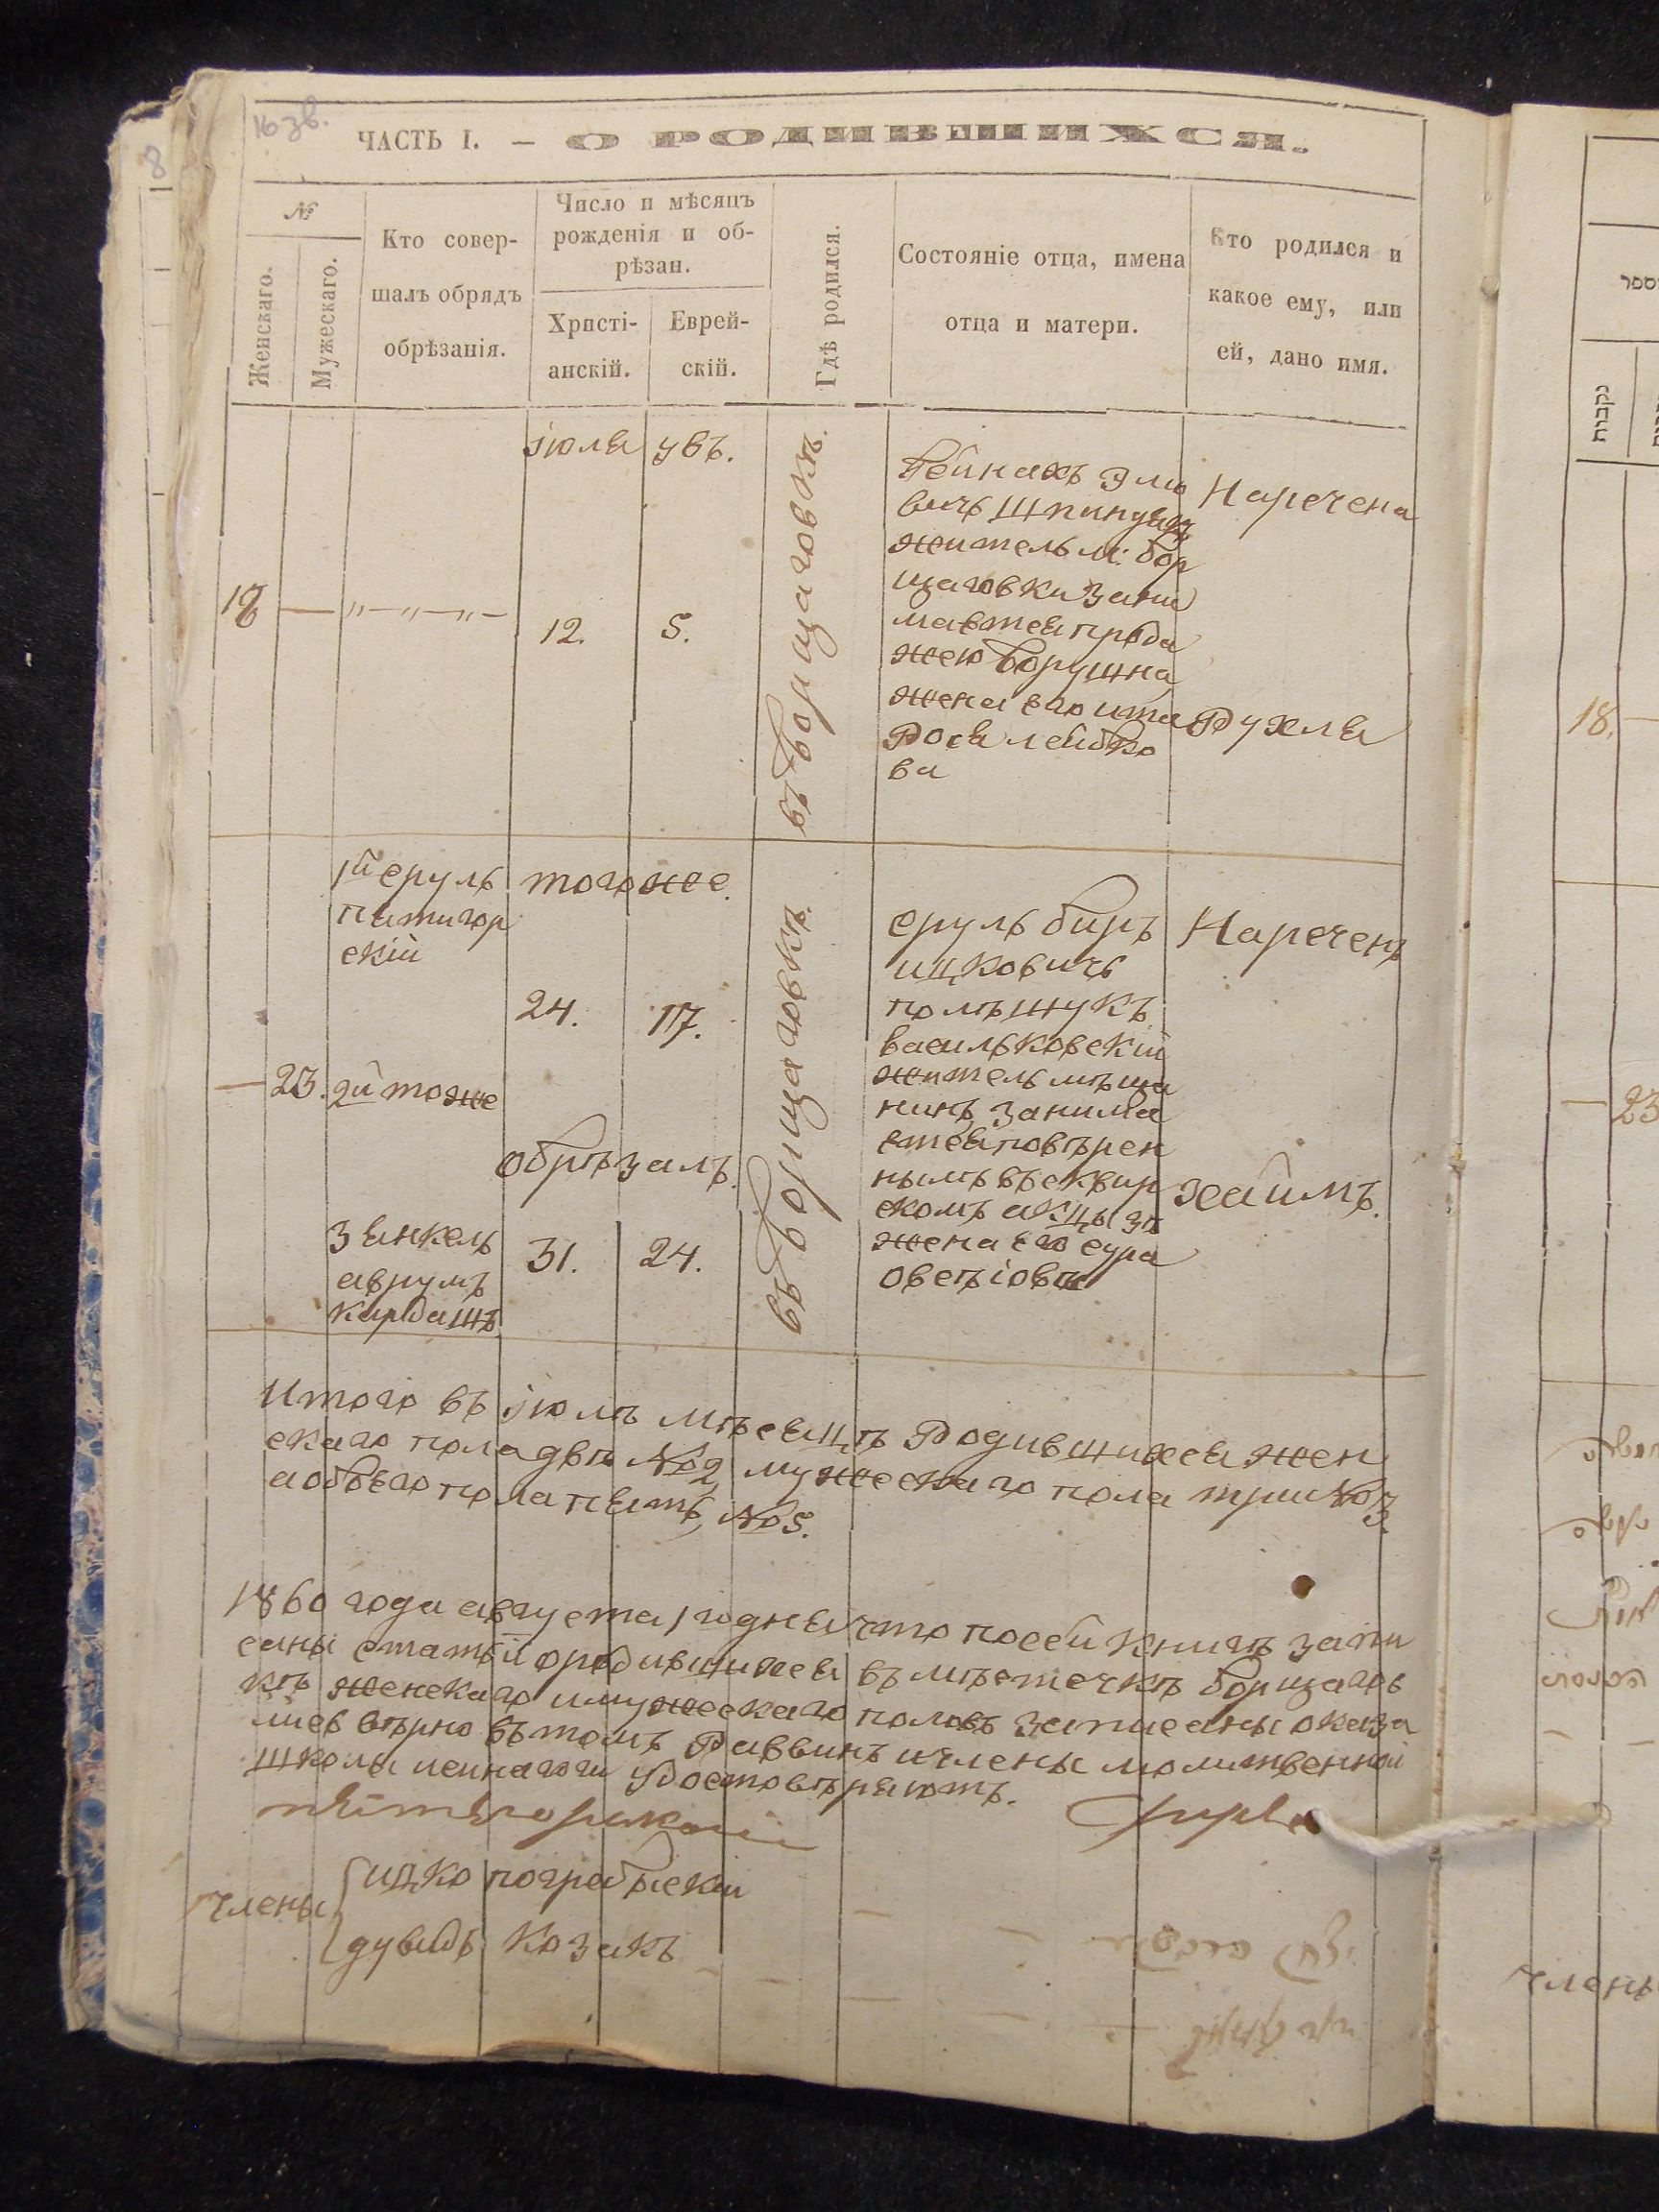 16 зв.
8
ЧАСТЬ I. — О РОДИВШИХСЯ.
№
Женскаго.
Мужескаго.
Кто совер-
шалъ обрядъ
обрѣзанія.
Число и мѣсяцъ
рожденія и об-
рѣзан.
Христі-
анскій.
Еврей-
скій.
Гдѣ родился.
Состояніе отца, имена
отца и матери.
Кто родился и
какое ему, или
ей, дано имя.
18
— „—„—„—
іюля
12.
увъ.
5.
въ борщаговкѣ.
вичь
житель м: бор
щаговки зани
мается прода
жею
жена его ита
Рося лейбко
ва
Наречена
Рухля
— 23.
1й сруль
пятигор
скій
2й тоже
зянкель
аврумъ
кардашъ
тогоже.
24.
17.
обрѣзалъ.
31.
24.
въ борщаговкѣ.
сруль беръ
ицковичь
полѣщукъ
васильковскій
житель мѣща
нинъ занима
ется повѣрен
нымъ въ сквир
скомъ
жена его сура
Нареченъ
хаймъ.
Итого въ іюлѣ мѣсяцѣ Родившихся жен
скаго пола двѣ №2 мужескаго пола три №3
а обоего пола пять №5.
1860 года августа 1го дня что по сей книгѣ запи
саны статьи о родившихся въ мѣстечкѣ борщагов
кѣ женскаго и мужескаго половъ записаны оказа
лись вѣрно въ томъ Раввинъ и члены молитвенной
школы Удостовѣряютъ.
члены
ицко погребискій
дувидъ козакъ
מספר
נקבות
18.
— 23
члены